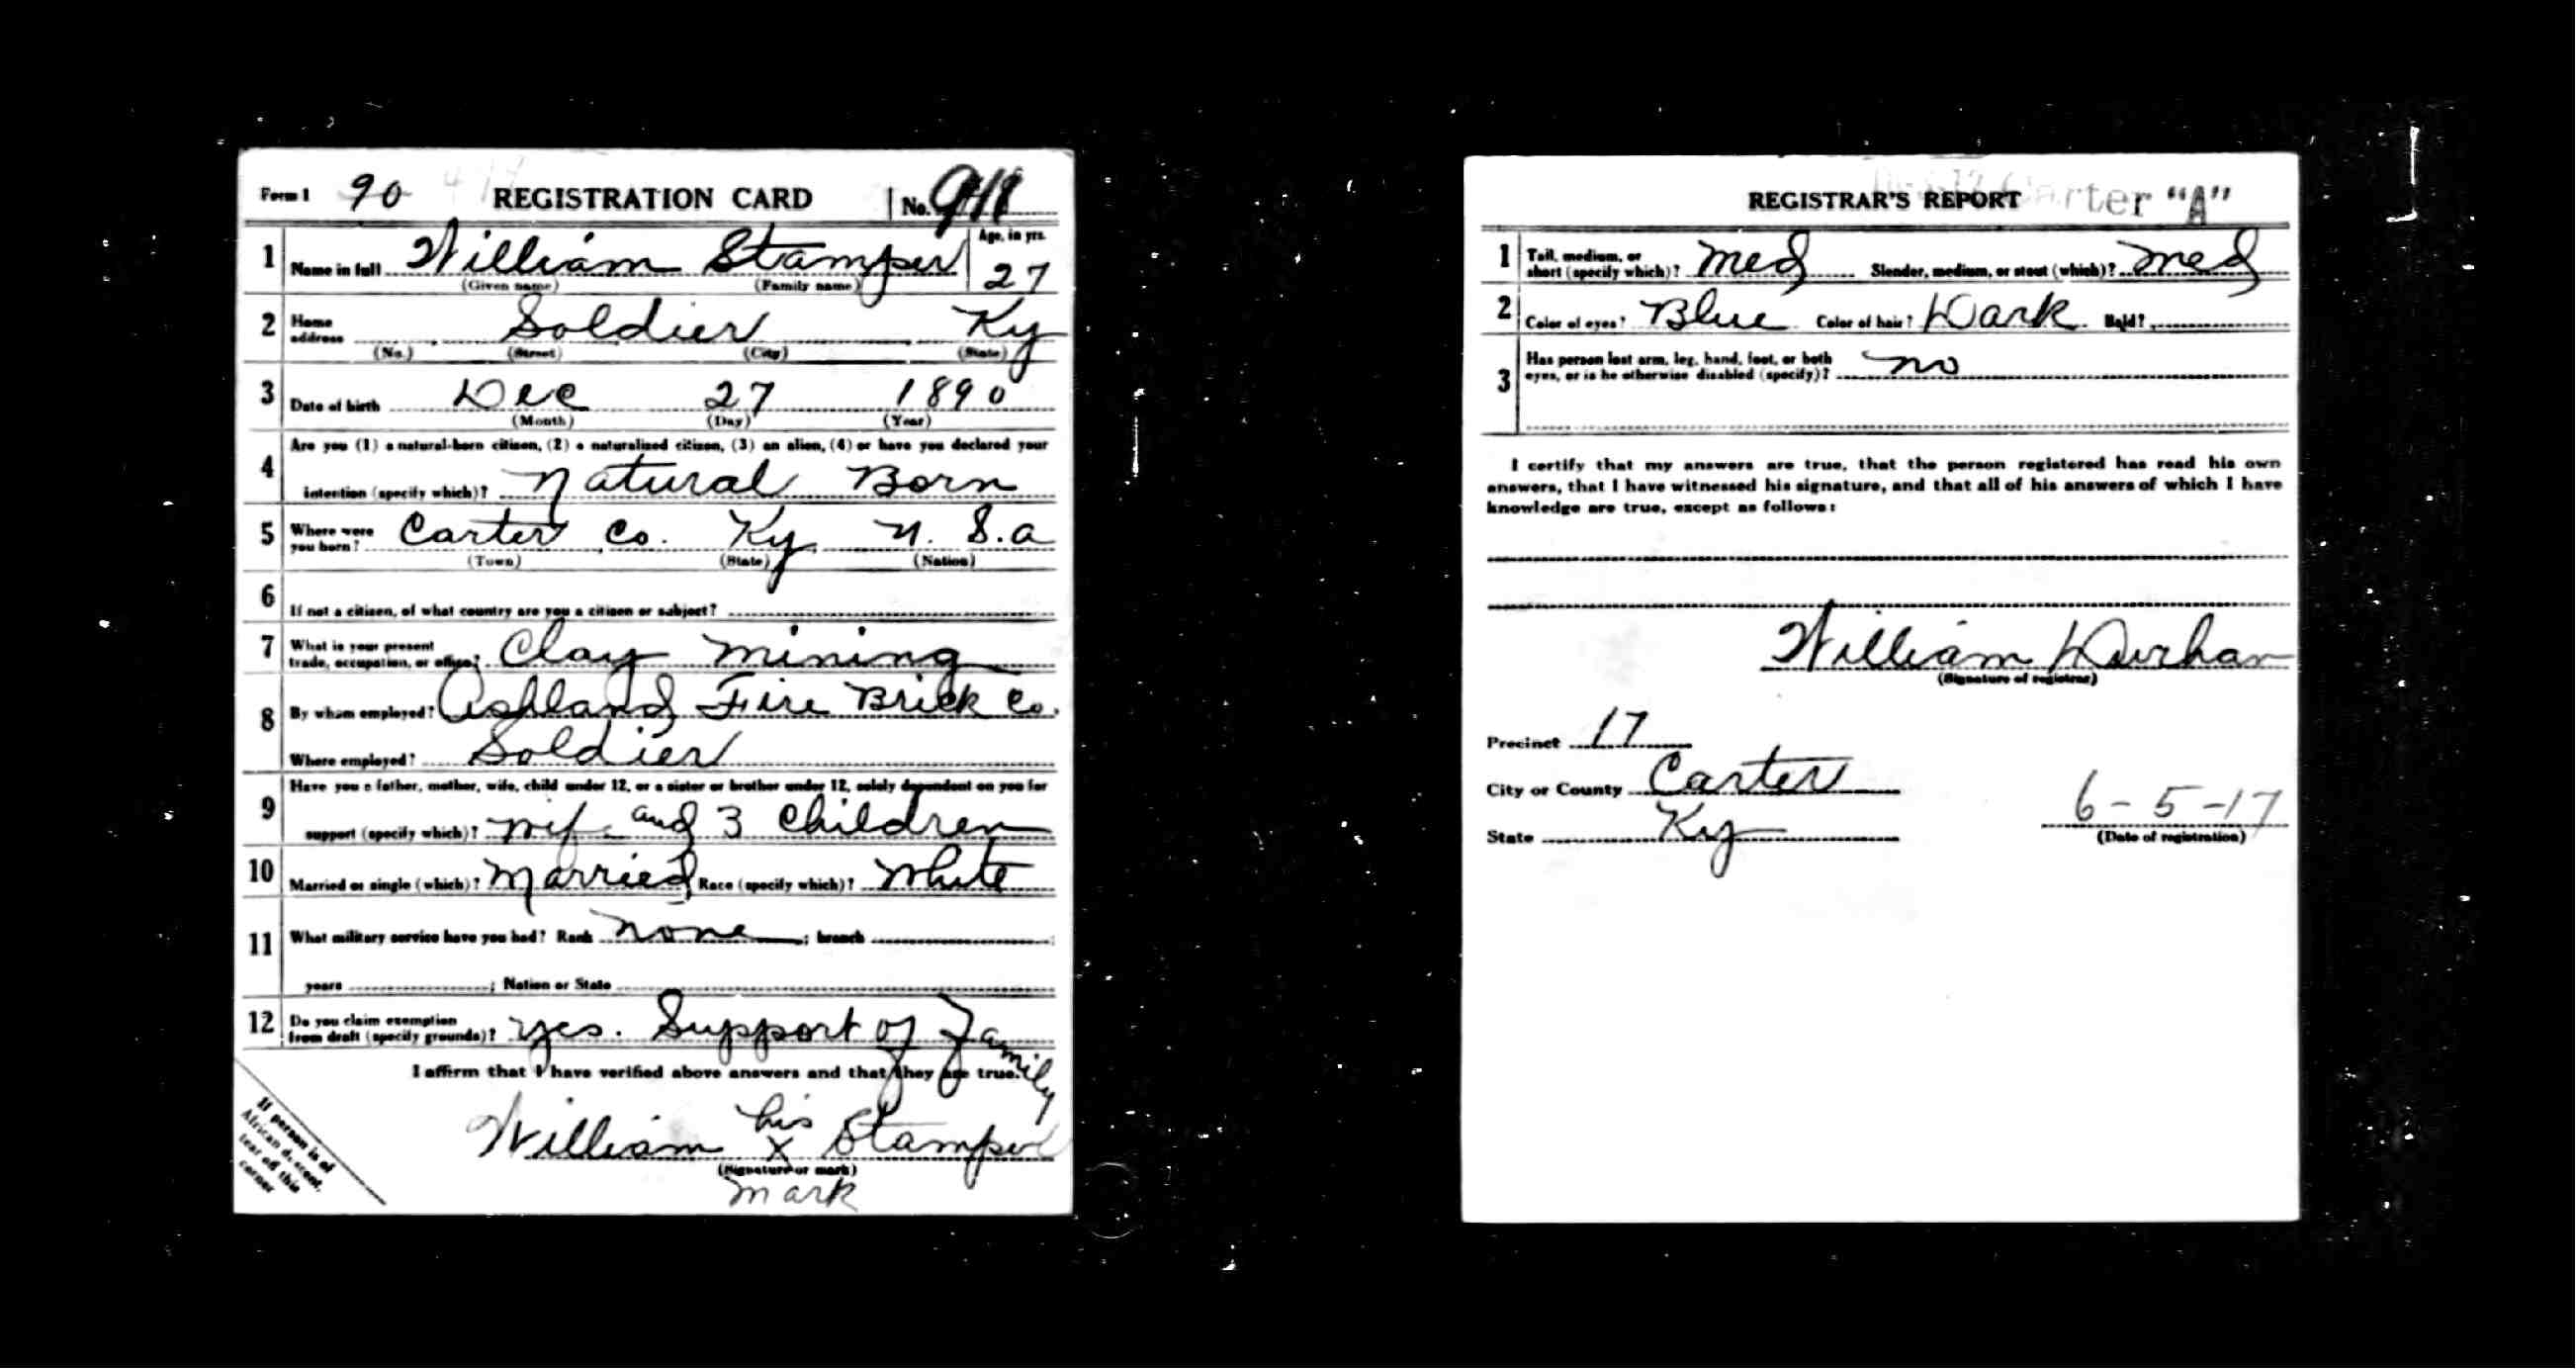 Form 1 90 REGISTRATION CARD No. 918
1 Name in full William Stamper Age, in yrs. 27
(Given name) (Family name)
2 Home address Soldier Ky
(No.) (Street) (City) (State)
3 Date of birth Dec 27 1890
(Month) (Day) (Year)
4 Are you (1) a natural-born citizen, (2) a naturalized citizen, (3) an alien, (4) or have you declared your
intention (specify which)? Natural Born
5 Where were you born? Carter Co. Ky U. S. a
(Town) (State) (Nation)
6 If not a citizen, of what country are you a citizen or subject?
7 What is your present trade, occupation, or office? Clay mining
8 By whom employed? Ashland Fire Brick Co.
Where employed? Soldier
9 Have you a father, mother, wife, child under 12, or a sister or brother under 12, solely dependent on you for
support (specify which)? wif and 3 children
10 Married or single (which)? Married Race (specify which)? White
11 What military service have you had? Rank none ; branch ;
years ; Nation or State
12 Do you claim exemption from draft (specify grounds)? yes. Support of Family
I affirm that I have verified above answers and that they are true.
William his x Stamper
(Signature or mark)
mark
If person is of
African descent,
tear off this
corner
REGISTRAR'S REPORT Carter "A"
1 Tall, medium, or short (specify which)? med Slender, medium, or stout (which)? med
2 Color of eyes? Blue Color of hair? Dark Bald?
3 Has person lost arm, leg, hand, foot, or both
eyes, or is he otherwise disabled (specify)? no
I certify that my answers are true, that the person registered has read his own
answers, that I have witnessed his signature, and that all of his answers of which I have
knowledge are true, except as follows:
William Durhan
(Signature of registrar)
Precinct 17
City or County Carter
State Ky
6-5-17
(Date of registration)